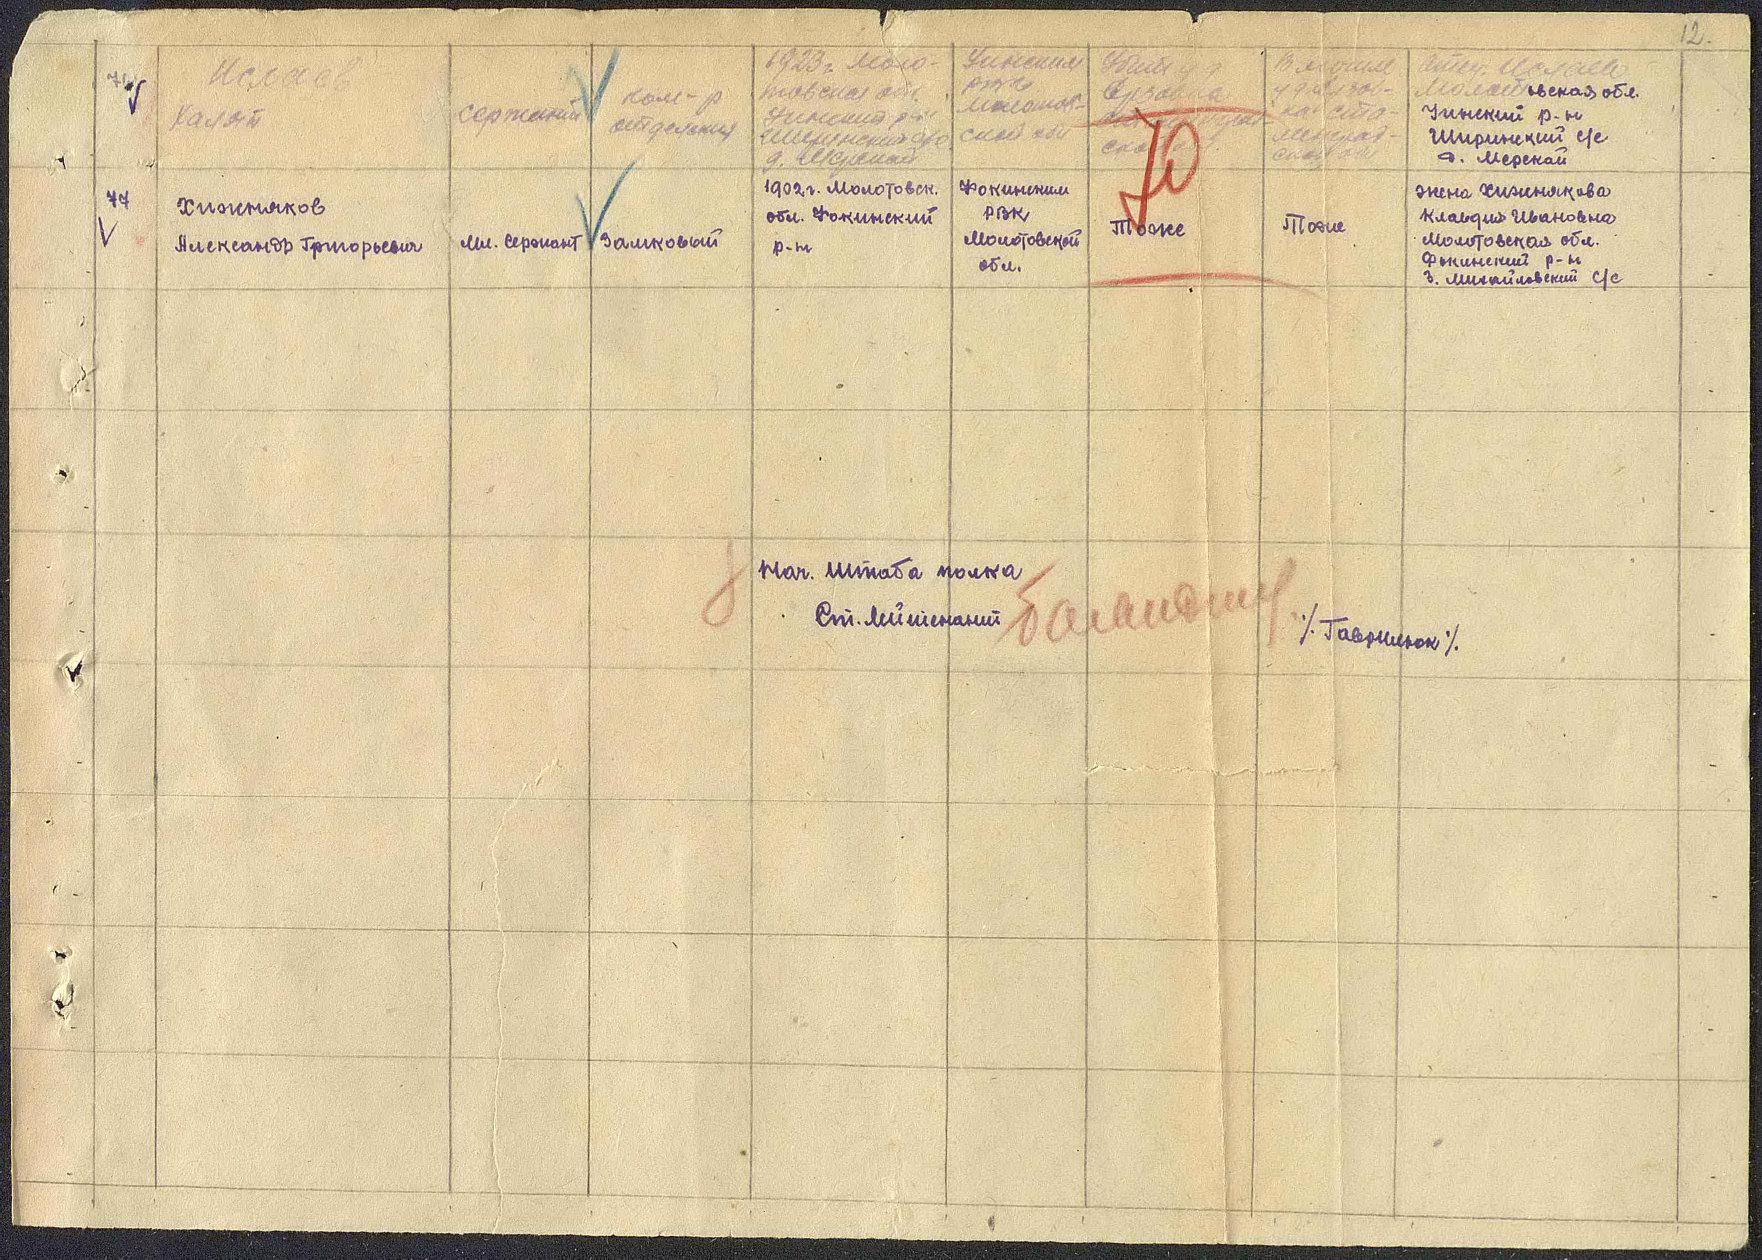 12.
Исмаев
Халят
сержант
ком-р
отделения
1923г. Моло-
товская обл
Уинский р-н
Ширинский с/с
д. Мерекай
Уинским
РВК
Молотов-
ской обл
Убит у д
Ерзовка
Сталинград-
ской
В могиле
у д Ерзов-
ка Ста-
линград-
ской обл
отец Исмаев
Молотовская обл.
Уинский р-н
Ширинский с/с
д. Мерекай
77
Хижняков
Александр Григорьевич
Мл. Сержант
Замковый
1902г. Молотовск.
обл. Фокинский
р-н
Фокинским
РВК
Молотовской
обл.
Тоже
Тоже
жена Хижнякова
Клавдия Ивановна
Молотовская обл.
Фокинский р-н
З. Михайловский с/с
Нач. Штаба полка
Ст. Лейтенант
/. Гаврилюк /.